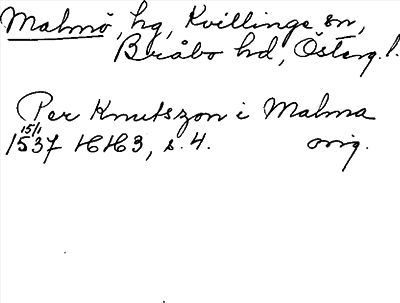 Malmö, hg, Kvillinge sn,
Bråbo hd, Österg. l.
Per Knutszon i Malma
15/1
1537 HH3, s. 4. orig.